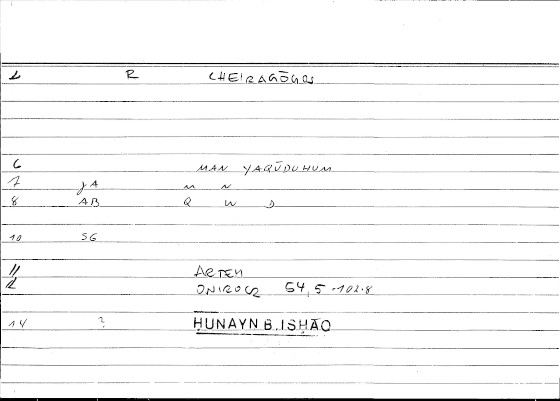 1 R CHEIRAGŌGOS
6 MAN YAQŪDUHUM
7 JA M N
8 AB Q W D
10 SG
11 ARTEM
12 ONIROCR 54,5-102.8
14 ? ḤUNAYN B. ISḤĀQ